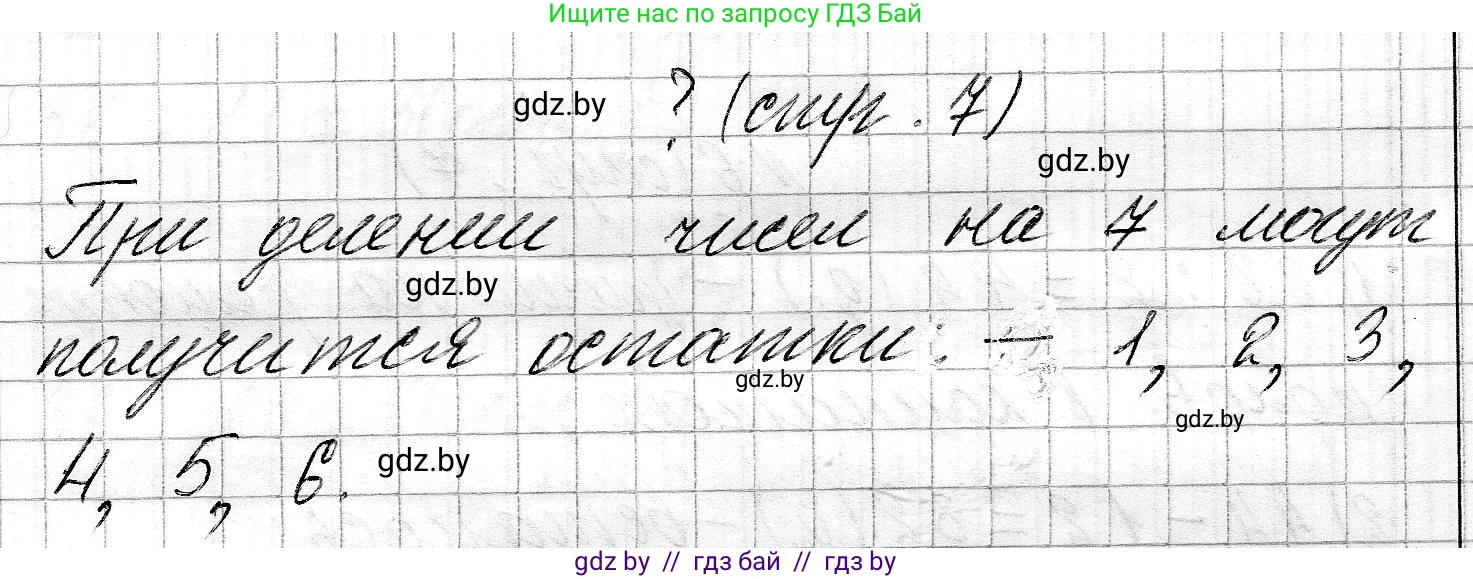 Ищите нас по запросу ГДЗ Бай
gdz.by ? (стр. 7)
gdz.by
При делении чисел на 7 могут
gdz.by
получится остатки: — 1, 2, 3,
gdz.by
gdz.by
4, 5, 6. gdz.by
gdz.by // гдз бай // гдз by